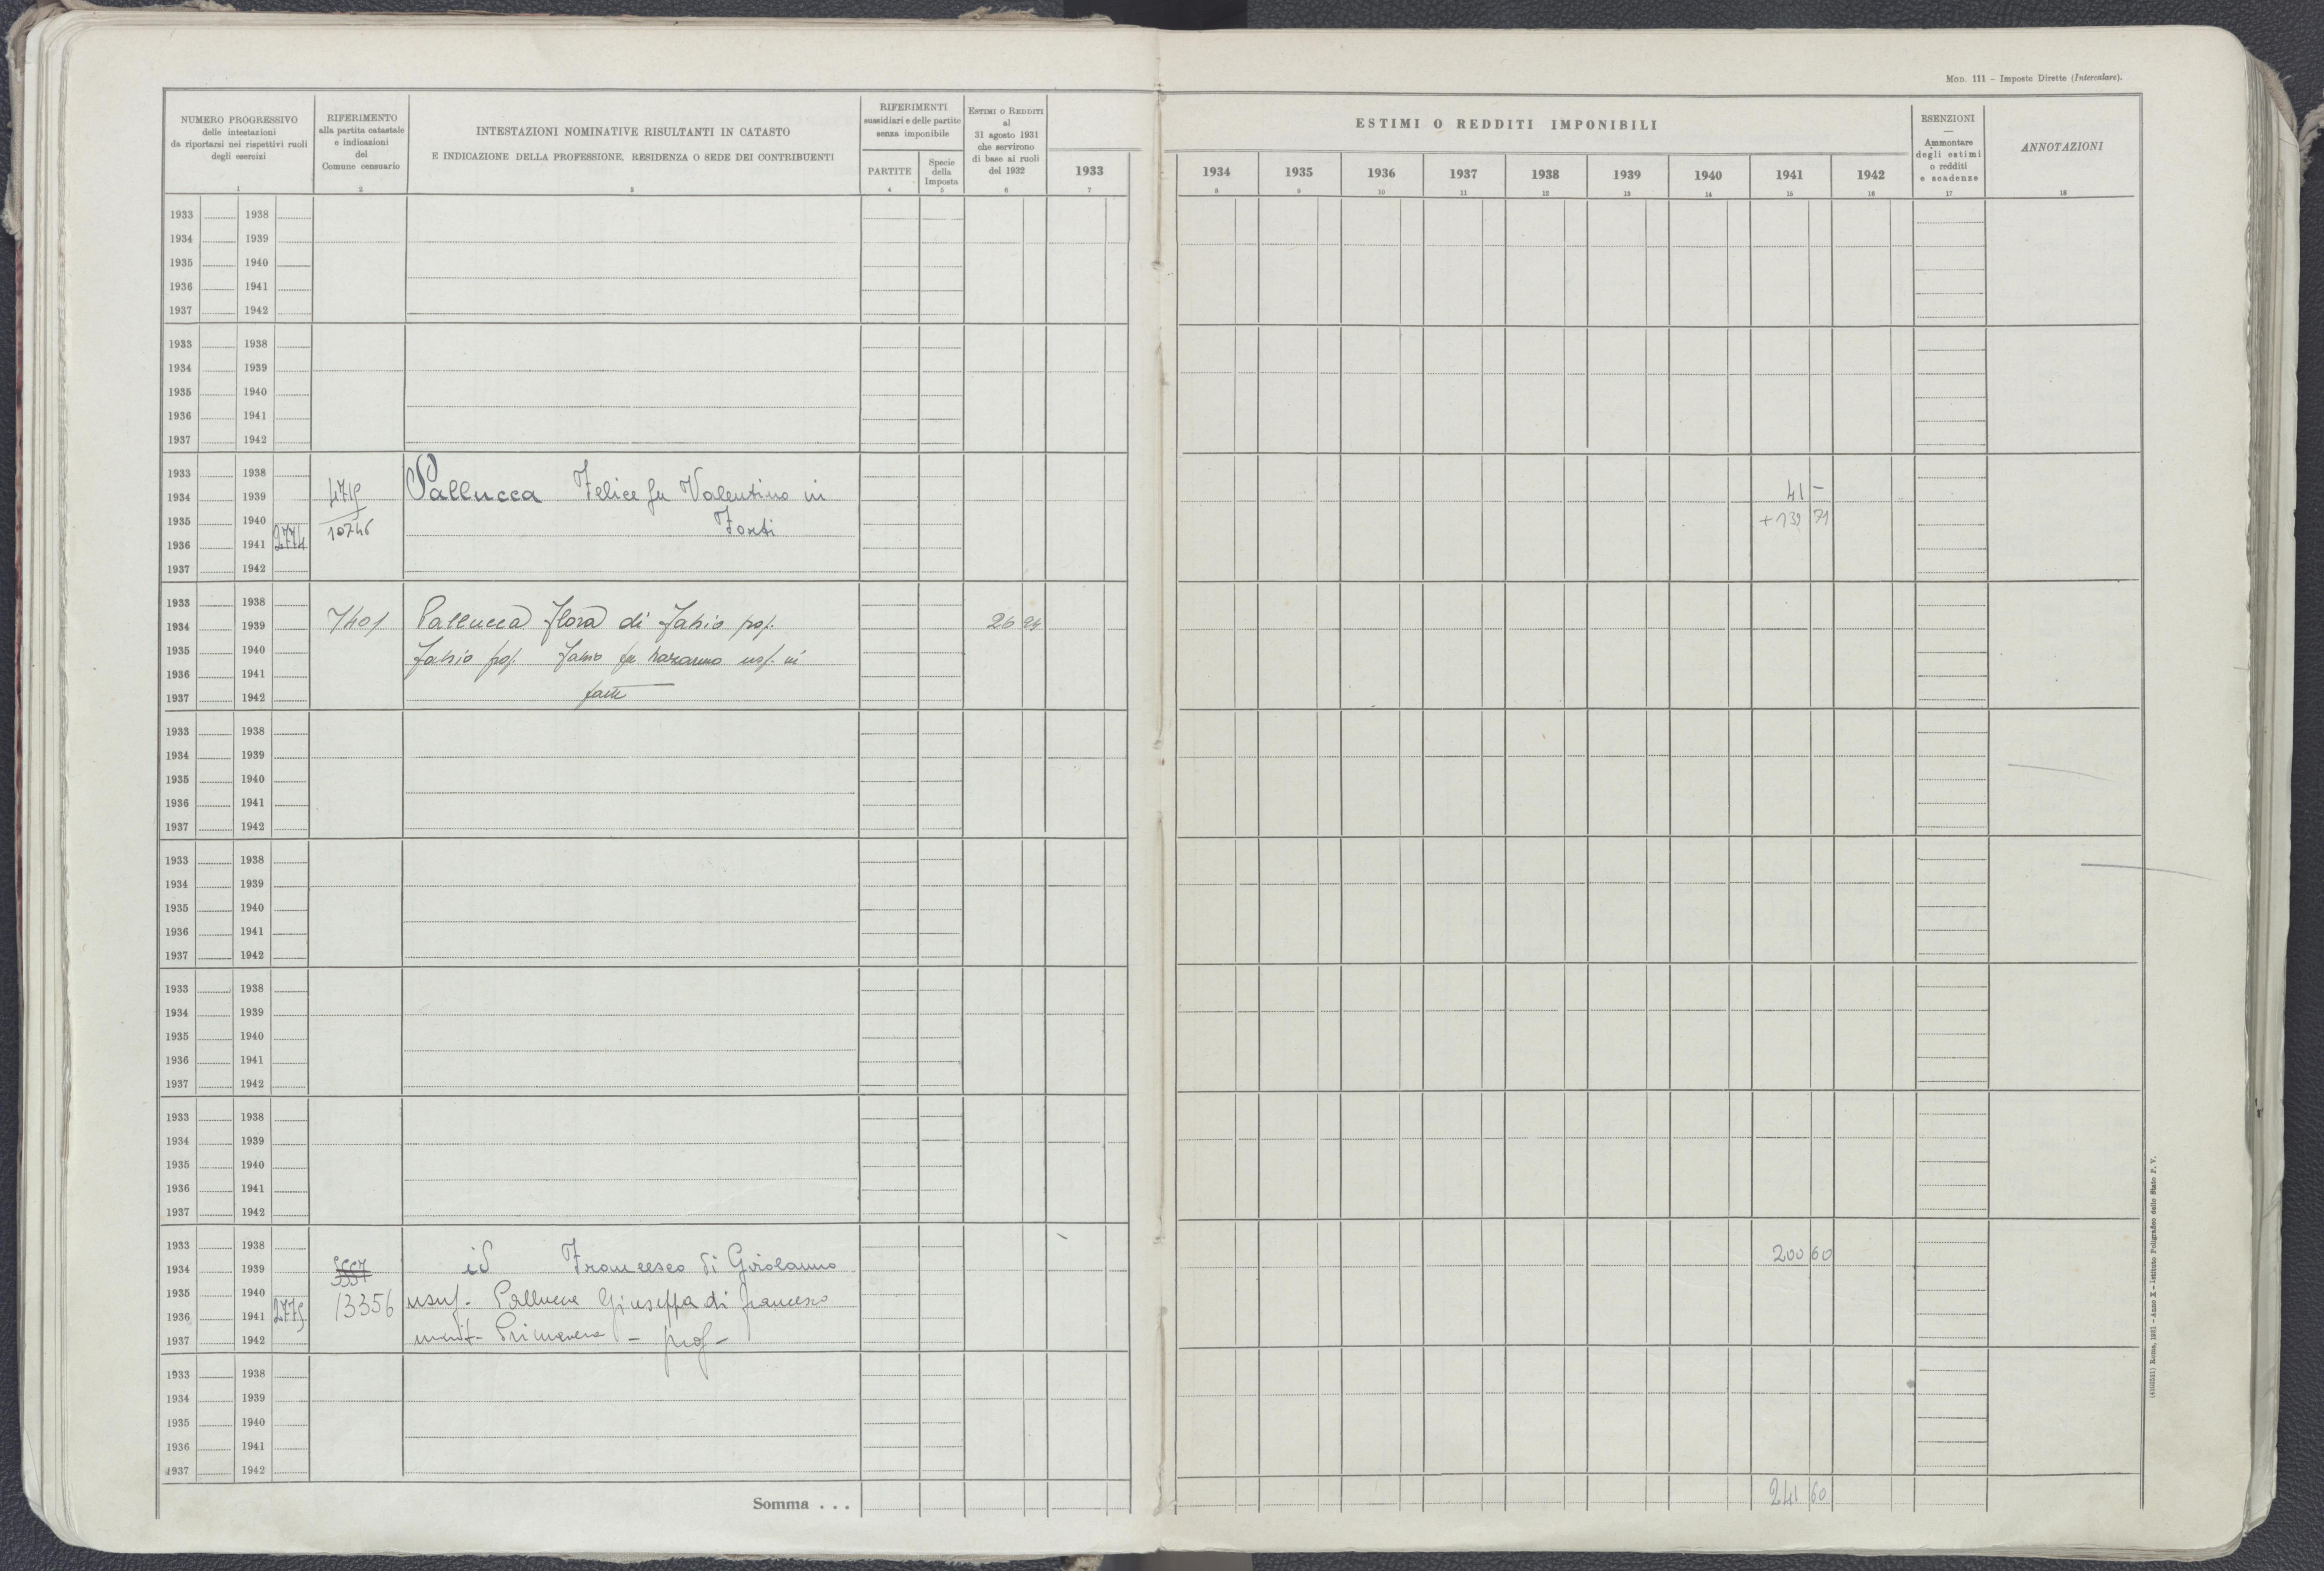 Mod. 111 - Imposte Dirette (Intercalare).
NUMERO PROGRESSIVO
delle intestazioni
da riportarsi nei rispettivi ruoli
degli esercizi
1
RIFERIMENTO
alla partita catastale
e indicazioni
del
Comune censuario
2
INTESTAZIONI NOMINATIVE RISULTANTI IN CATASTO
E INDICAZIONE DELLA PROFESSIONE, RESIDENZA O SEDE DEI CONTRIBUENTI
3
RIFERIMENTI
sussidiari e delle partite
senza imponibile
PARTITE
4
Specie
della
Imposta
5
ESTIMI O REDDITI
al
31 agosto 1931
che servirono
di base ai ruoli
del 1932
6
1933
7
ESTIMI O REDDITI IMPONIBILI
1934 1935 1936 1937 1938 1939 1940 1941 1942
8 9 10 11 12 13 14 15 16
ESENZIONI
—
Ammontare
degli estimi
o redditi
e scadenze
17
ANNOTAZIONI
18
1933 1938
1934 1939
1935 1940
1936 1941
1937 1942
1933 1938
1934 1939
1935 1940
1936 1941
1937 1942
1933 1938
1934 1939 4719 Pallucca Felice fu Valentino in 41 -
1935 1940 10746 Forti + 139 71
1936 1941 2774
1937 1942
1933 1938
1934 1939 7401 Pallucca Flora di Fabio prop. 26 24
1935 1940 Fabio prop. Fabio fu Nazareno usf. in
1936 1941
1937 1942 parte
1933 1938
1934 1939
1935 1940
1936 1941
1937 1942
1933 1938
1934 1939
1935 1940
1936 1941
1937 1942
1933 1938
1934 1939
1935 1940
1936 1941
1937 1942
1933 1938
1934 1939
1935 1940
1936 1941
1937 1942
1933 1938
1934 1939 5557 id Francesco di Girolamo 200 60
1935 1940 13356 usuf. Pallucca Giuseppa di Francesco
1936 1941 2775
1937 1942 marit. Primavera - prop -
1933 1938
1934 1939
1935 1940
1936 1941
1937 1942
Somma . . . 241 60
Roma, 1931 - Anno X - Istituto Poligrafico dello Stato P. V.